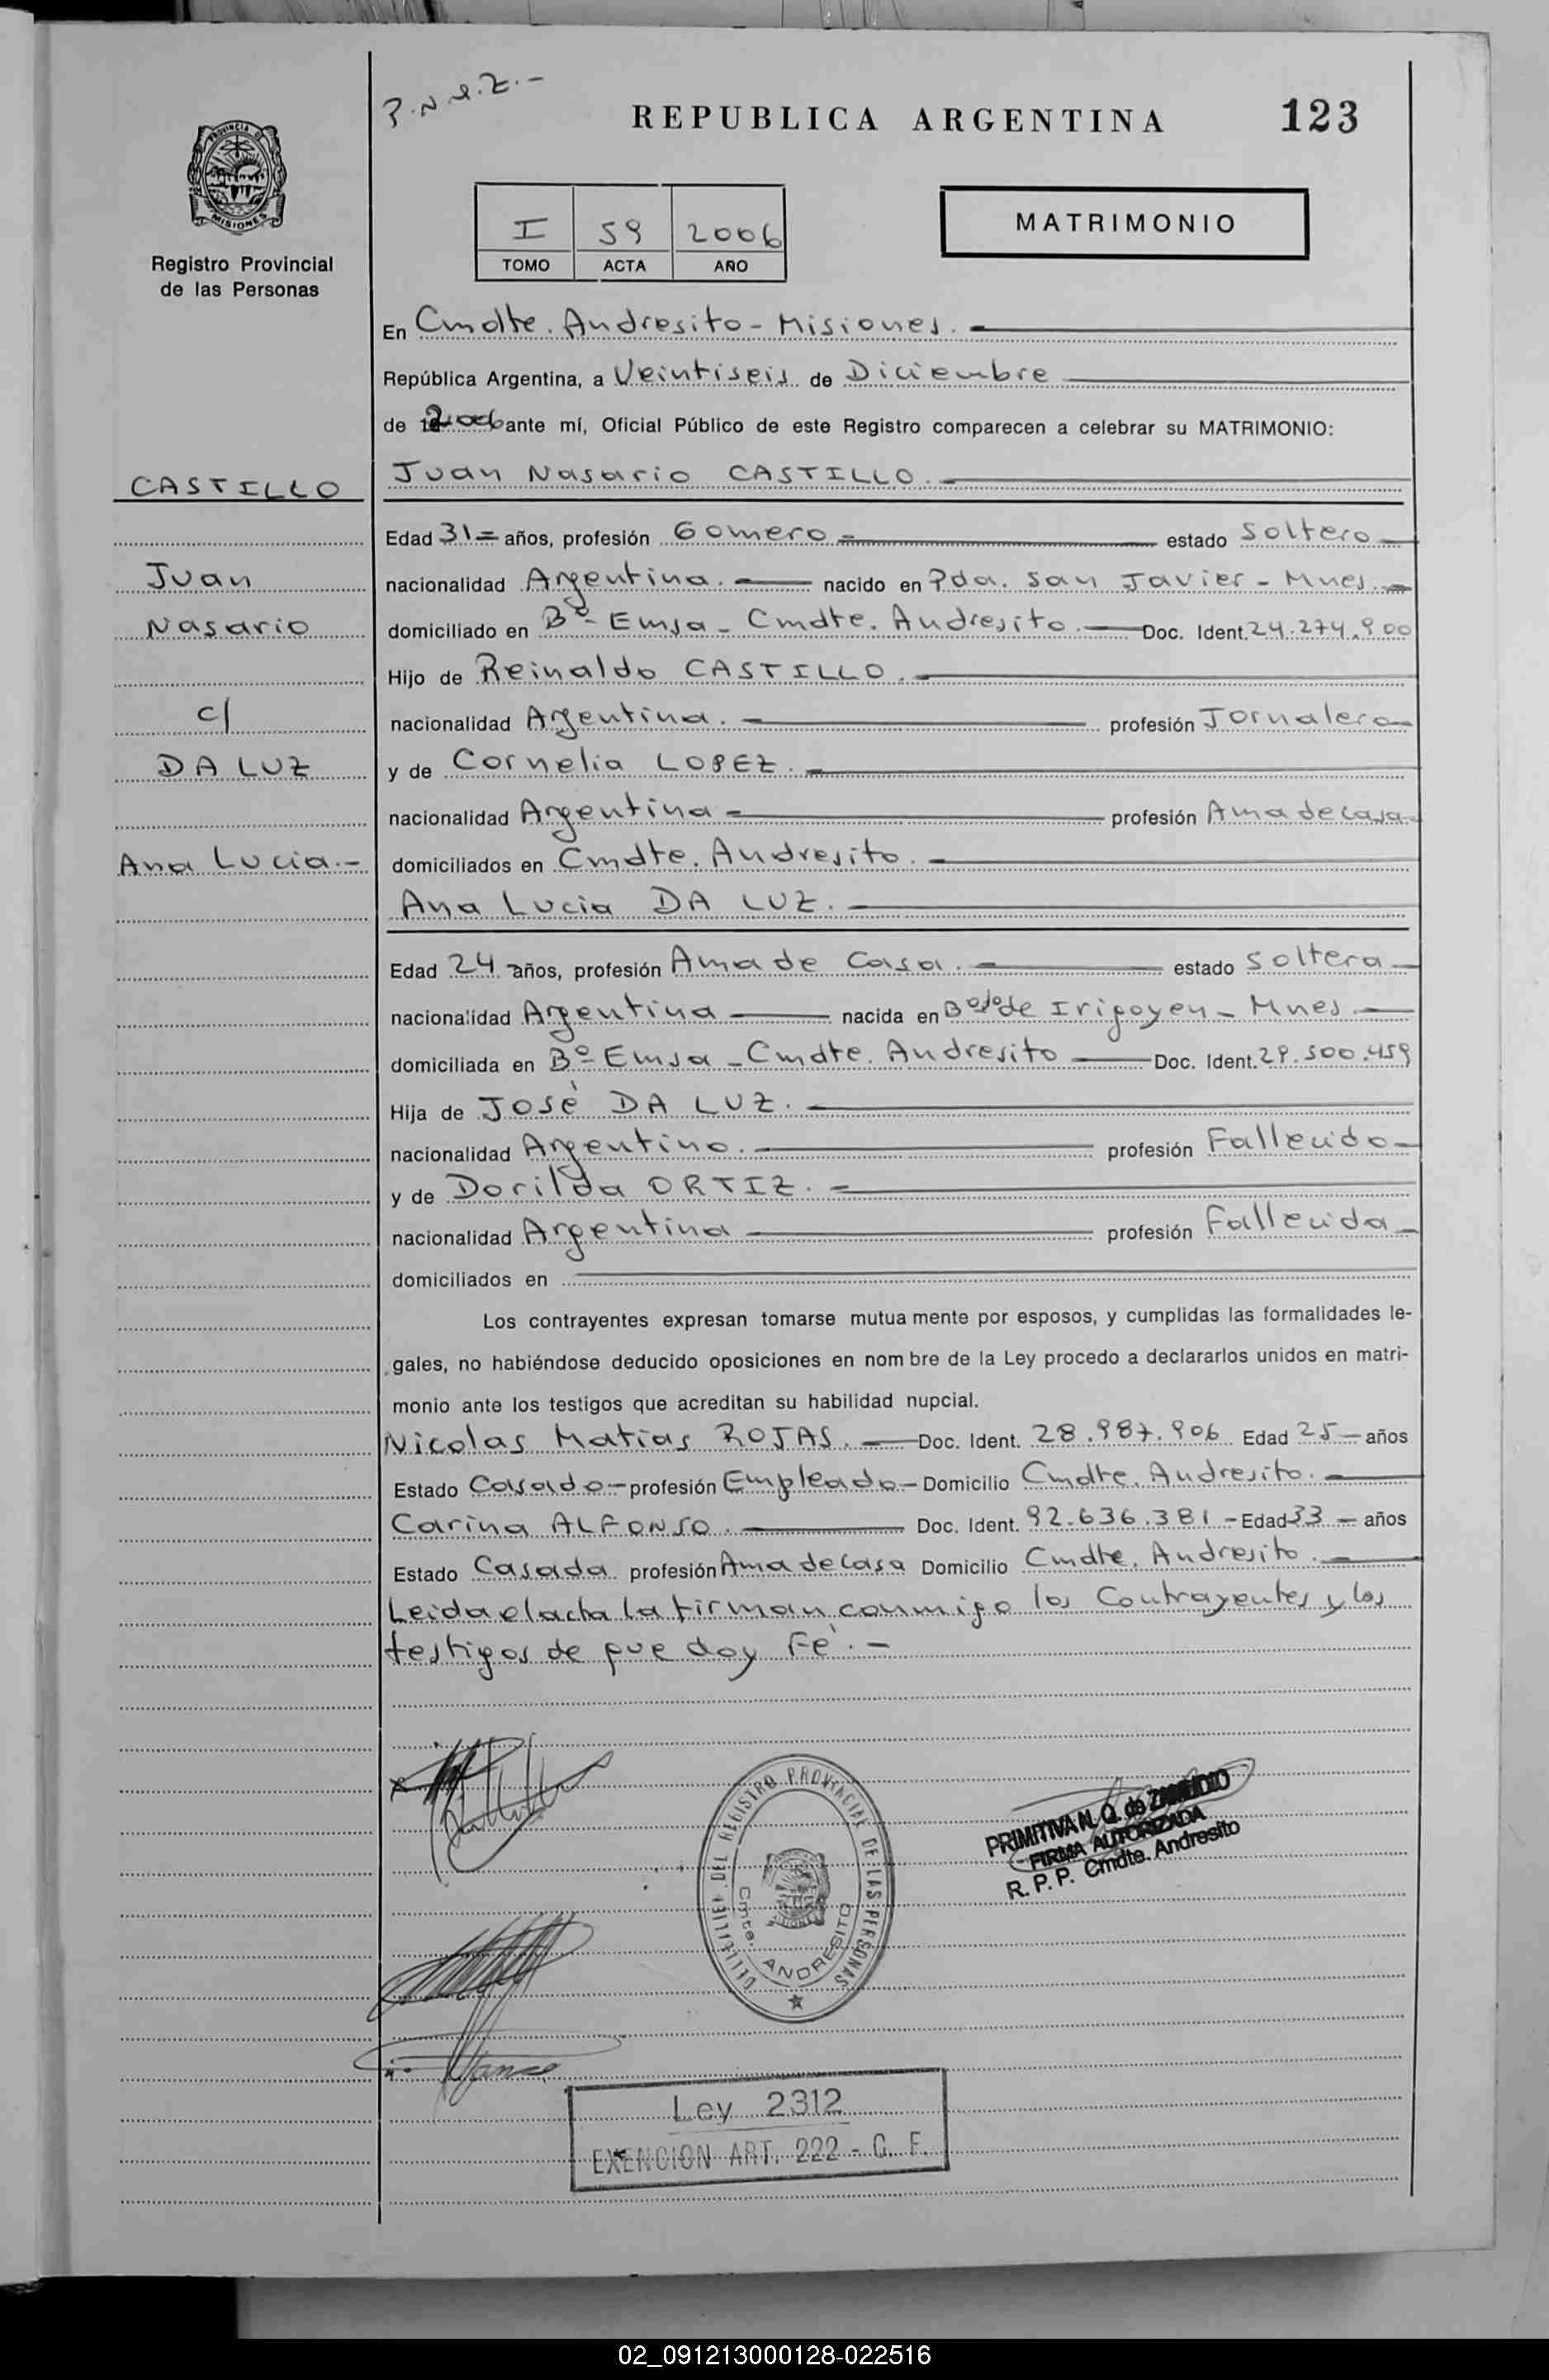 REPUBLICA ARGENTINA 123
MATRIMONIO
I 59 2006
TOMO ACTA AÑO
PROVINCIA DE
MISIONES
Registro Provincial
de las Personas
En Cmdte. Andresito - Misiones.
República Argentina, a Veintiseis de Diciembre
de 2006 ante mí, Oficial Público de este Registro comparecen a celebrar su MATRIMONIO:
CASTILLO
Juan Nasario CASTILLO.
Edad 31 = años, profesión Gomero estado Soltero
Juan
nacionalidad Argentina. nacido en Pda. San Javier - Mnes.
Nasario
domiciliado en Bº Emsa - Cmdte. Andresito. Doc. Ident. 24.274.900
Hijo de Reinaldo CASTILLO.
c/
nacionalidad Argentina. profesión Jornalero
DA LUZ
y de Cornelia LOPEZ.
nacionalidad Argentina profesión Ama de casa
Ana Lucia.-
domiciliados en Cmdte. Andresito.
Ana Lucia DA LUZ.
Edad 24 años, profesión Ama de Casa. estado Soltera
nacionalidad Argentina nacida en Bdo de Irigoyen - Mnes
domiciliada en Bº Emsa - Cmdte. Andresito Doc. Ident. 29.500.459
Hija de José DA LUZ.
nacionalidad Argentino. profesión Fallecido
y de Dorilda ORTIZ.
nacionalidad Argentina profesión Fallecida
domiciliados en
Los contrayentes expresan tomarse mutua mente por esposos, y cumplidas las formalidades le-
gales, no habiéndose deducido oposiciones en nom bre de la Ley procedo a declararlos unidos en matri-
monio ante los testigos que acreditan su habilidad nupcial.
Nicolas Matias ROJAS. Doc. Ident. 28.987.906 Edad 25 años
Estado Casado profesión Empleado Domicilio Cmdte. Andresito.
Carina ALFONSO. Doc. Ident. 92.636.381 - Edad 33 años
Estado Casada profesión Ama de Casa Domicilio Cmdte. Andresito.
Leida el acta la firman conmigo los Contrayentes y los
testigos de que doy Fé.-
DEL REGISTRO PROVINCIAL DE LAS PERSONAS
Cmte. ANDRESITO
PRIMITIVA N. Q. de ZAMUDIO
FIRMA AUTORIZADA
R. P. P. Cmdte. Andresito
Ley 2312
EXENCION ART. 222 - C. F.
02_091213000128-022516